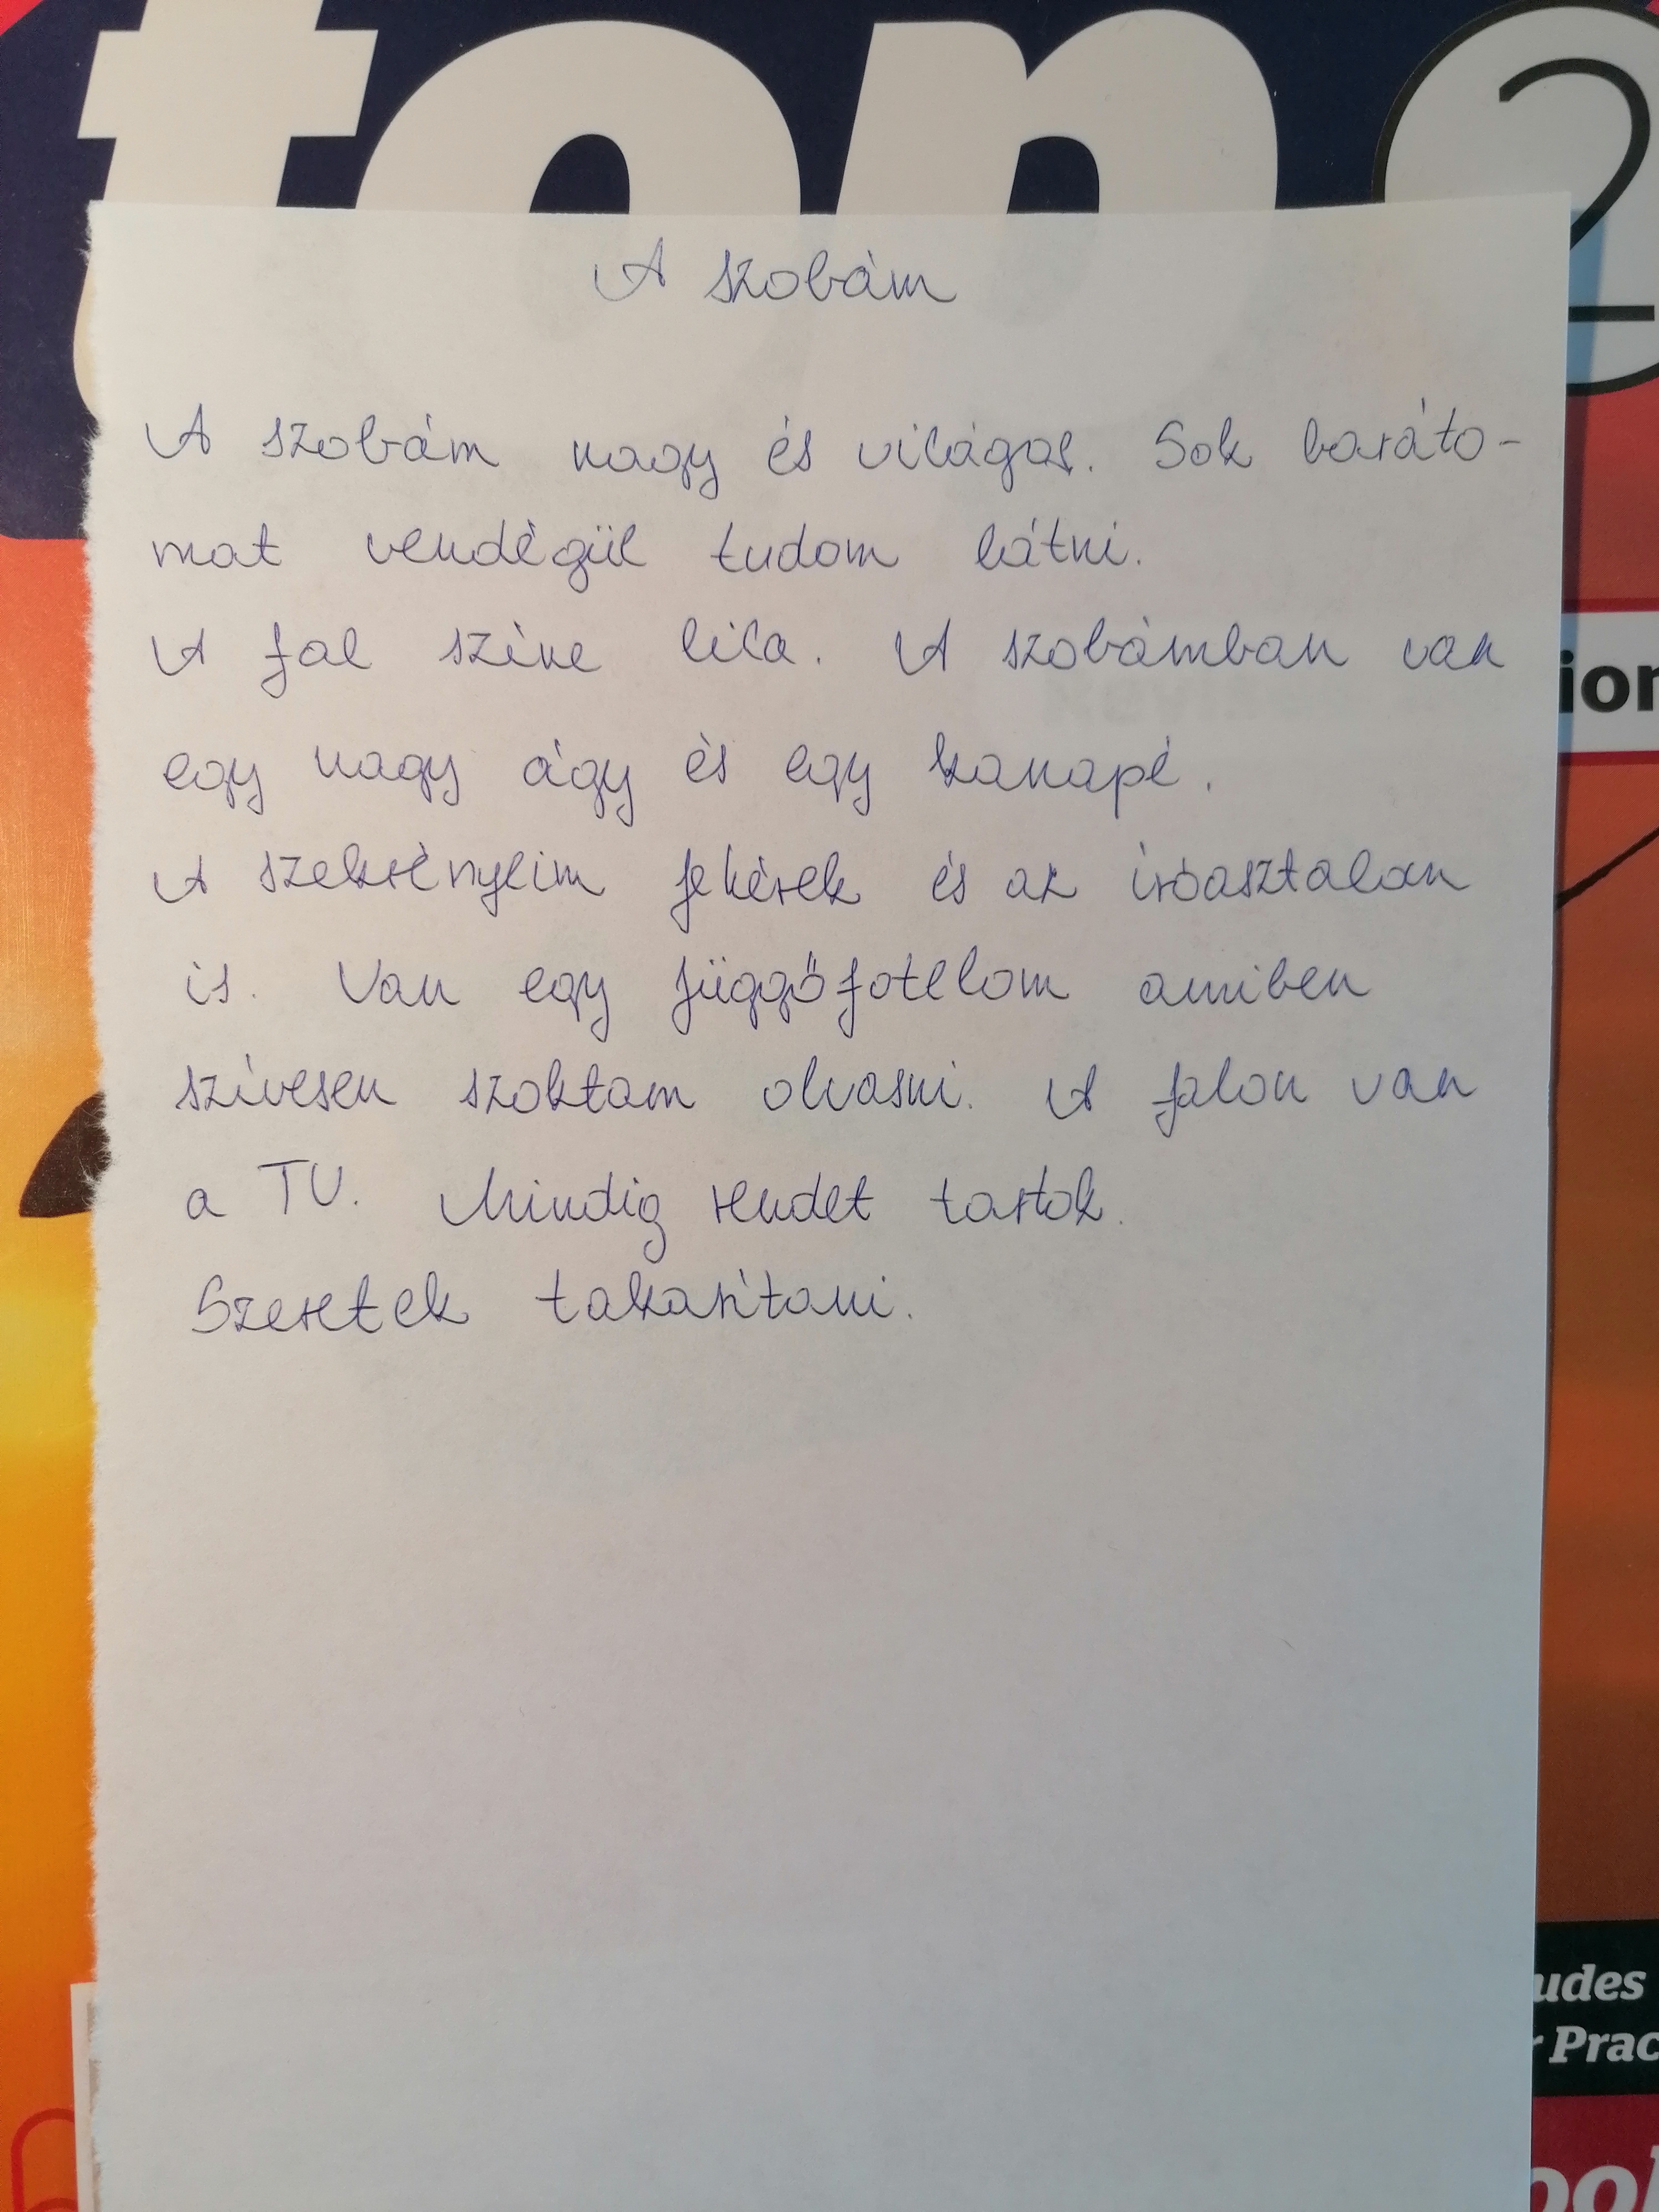 top 2
A szobám
A szobám nagy és világos. Sok baráto-
mat vendégül tudom látni.
A fal színe lila. A szobámban van
egy nagy ágy és egy kanapé.
A szekrényeim fehérek és az íróasztalom
is. Van egy függőfotelom amiben
szívesen szoktam olvasni. A falon van
a TV. Mindig rendet tartok.
Szeretek takarítani.
ion
udes
Prac